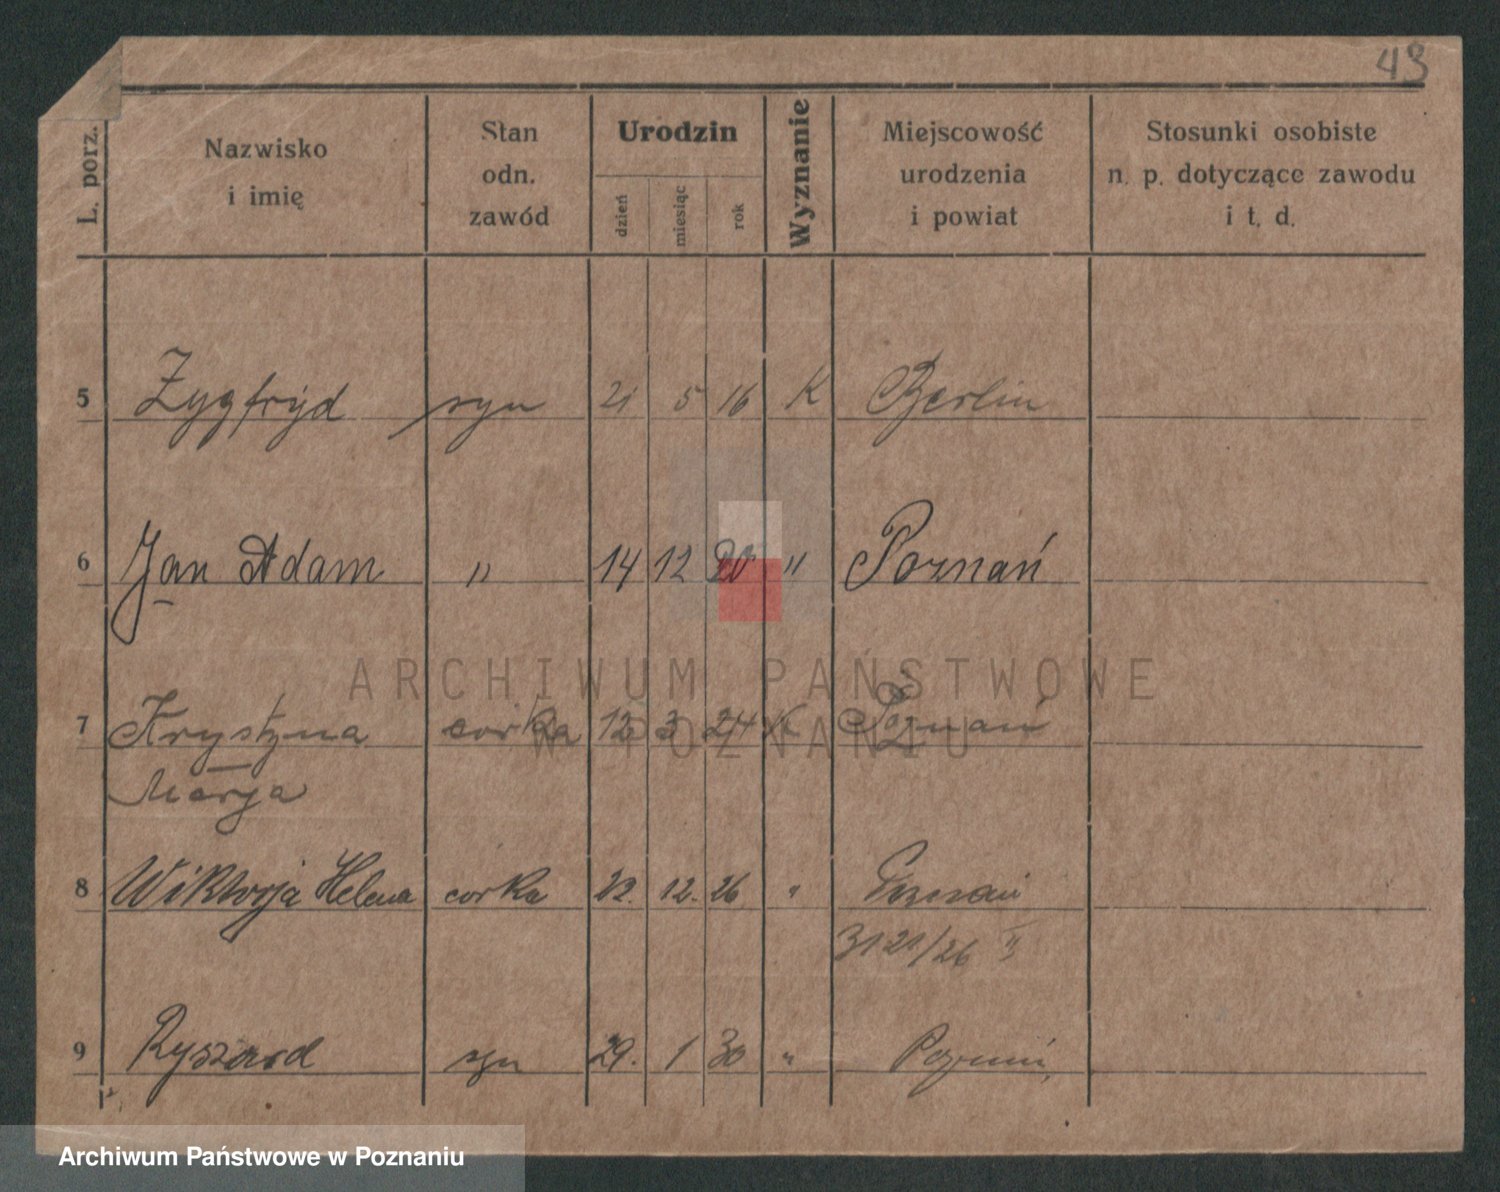 43
L. porz.
Nazwisko
i imię
Stan
odn.
zawód
Urodzin
dzień
miesiąc
rok
Wyznanie
Miejscowość
urodzenia
i powiat
Stosunki osobiste
n. p. dotyczące zawodu
i t. d.
5 Zygfryd syn 21 5 16 K Berlin
6 Jan Adam " 14 12 20 " Poznań
ARCHIWUM PAŃSTWOWE
W POZNANIU
7 Krystyna corka 12 3 24 K Poznań
Marja
8 Wiktorja Helena corka 22. 12. 26 " Poznań
3121/26 II
9 Ryszard syn 29. 1 30 " Poznań,
Archiwum Państwowe w Poznaniu